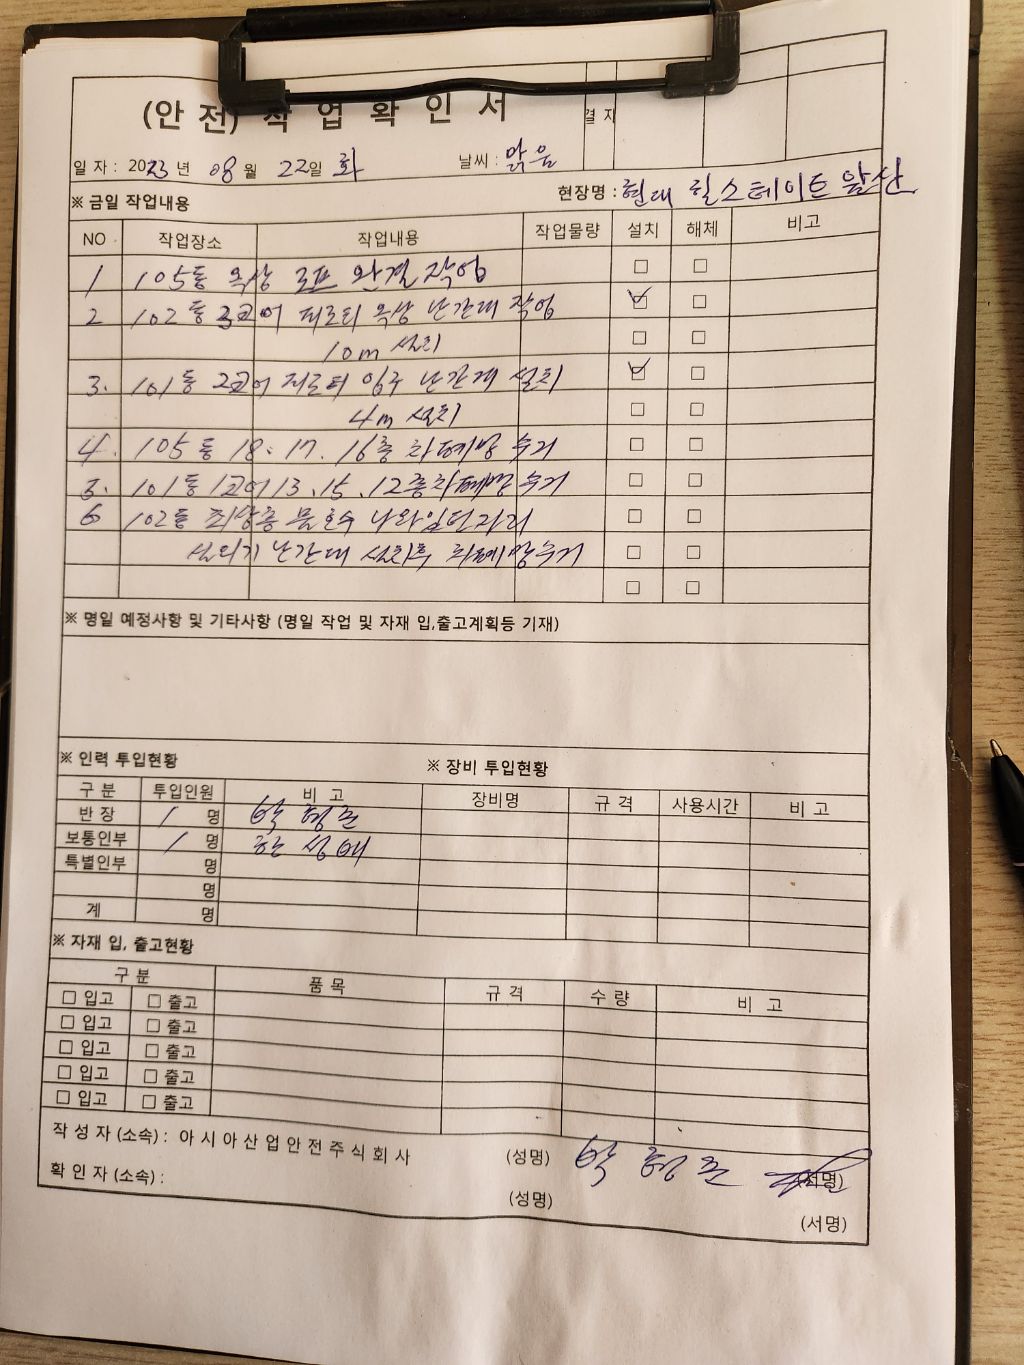 (안 전) 작 업 확 인 서
결 재
일 자 : 2023 년 08 월 22일 화 날씨 : 맑음
※ 금일 작업내용 현장명 : 현대 힐스테이트 앞산
NO 작업장소 작업내용 작업물량 설치 해체 비고
1 105동 옥상 로프 완결 작업 □ □
2 102동 3코어 피로티 옥상 난간대 작업 ☑ □
10m 설치 □ □
3. 101동 2코어 피로티 입구 난간대 설치 ☑ □
4m 설치 □ □
4. 105동 18. 17. 16층 차폐망 수거 □ □
5. 101동 1코어 13. 15. 12층 차폐망 수거 □ □
6 102동 최상층 몸 호수 나와있던자리 □ □
난간대 설치후 차폐망수거 □ □
□ □
※ 명일 예정사항 및 기타사항 (명일 작업 및 자재 입,출고계획등 기재)
※ 인력 투입현황 ※ 장비 투입현황
구 분 투입인원 비 고 장비명 규 격 사용시간 비 고
반 장 1 명 박 형준
보통인부 1 명 한 성애
특별인부 명
명
계 명
※ 자재 입, 출고현황
구 분 품 목 규 격 수 량 비 고
□ 입고 □ 출고
□ 입고 □ 출고
□ 입고 □ 출고
□ 입고 □ 출고
□ 입고 □ 출고
작 성 자 (소속) : 아 시 아 산 업 안 전 주 식 회 사 (성명) 박 형 준 (서명)
확 인 자 (소속) : (성명) (서명)